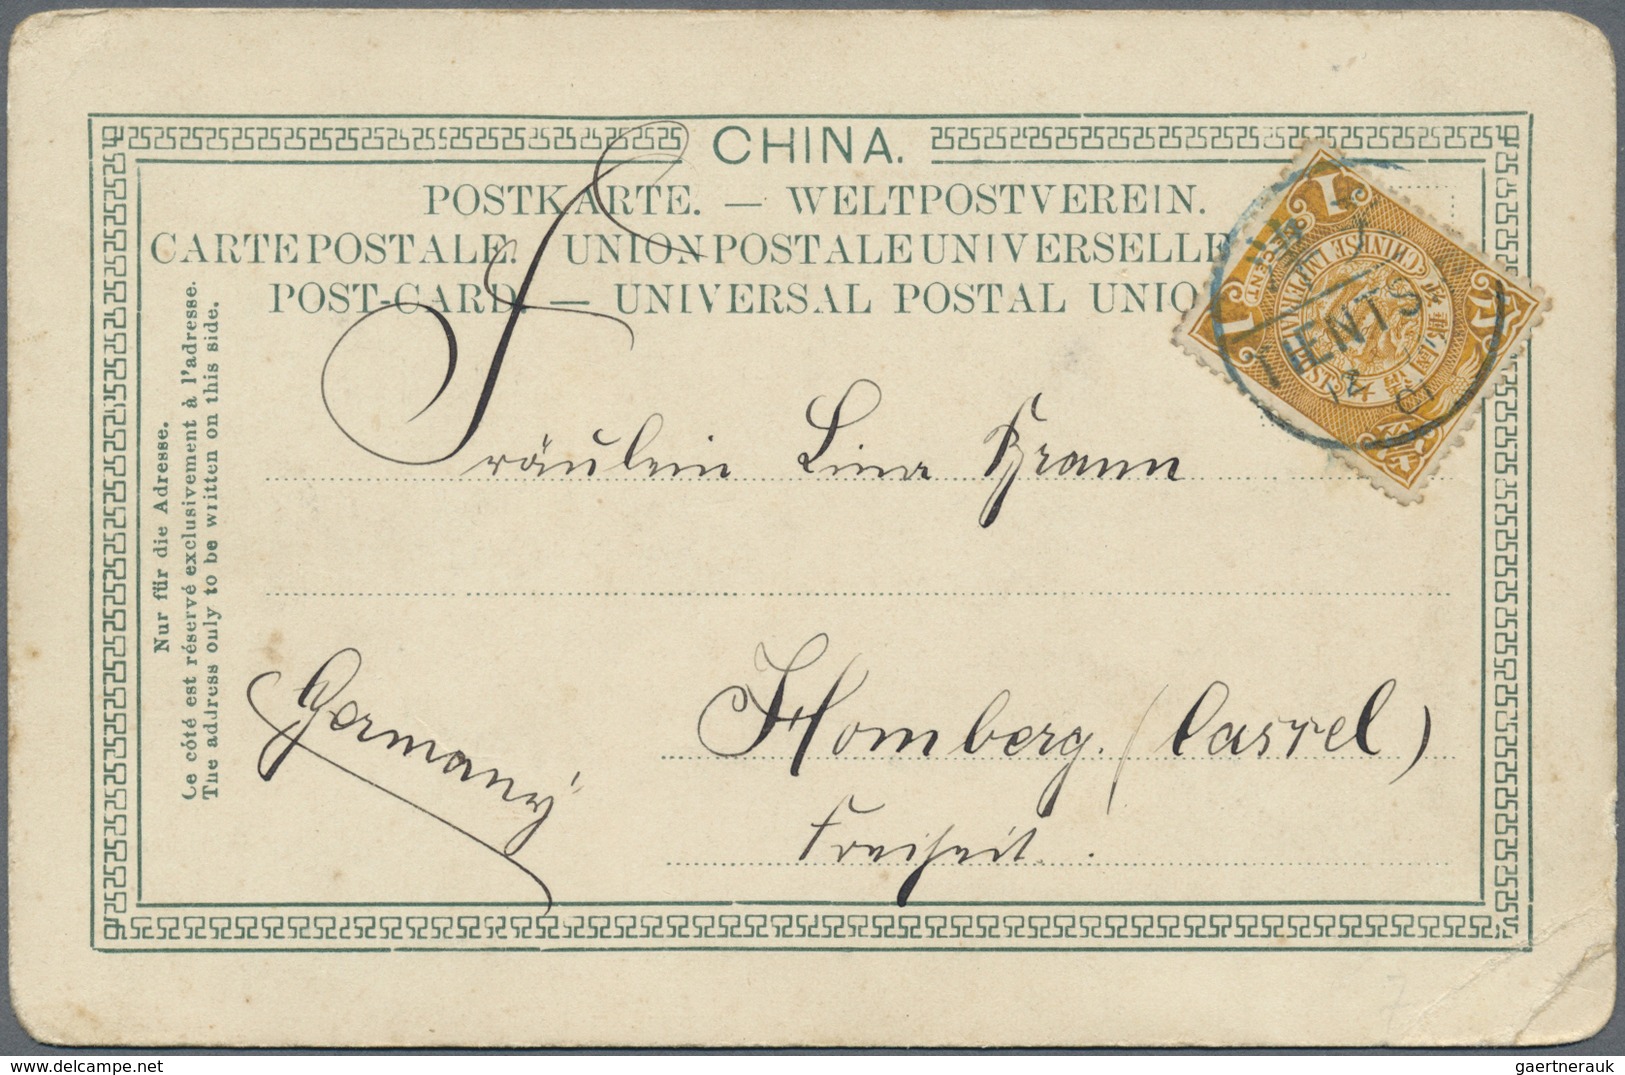 CHINA.
POSTKARTE. — WELTPOSTVEREIN.
CARTE POSTALE. UNION POSTALE UNIVERSELLE
POST-CARD. — UNIVERSAL POSTAL UNIO
Nur für die Adresse.
Ce côté est réservé exclusivement à l'adresse.
The address only to be written on this side.
1
CHINESE IMPERIAL
1
TIENTS
Fräulein Lina Braun
Homberg. (Cassel)
Freiheit.
Germany
gaertnerauk